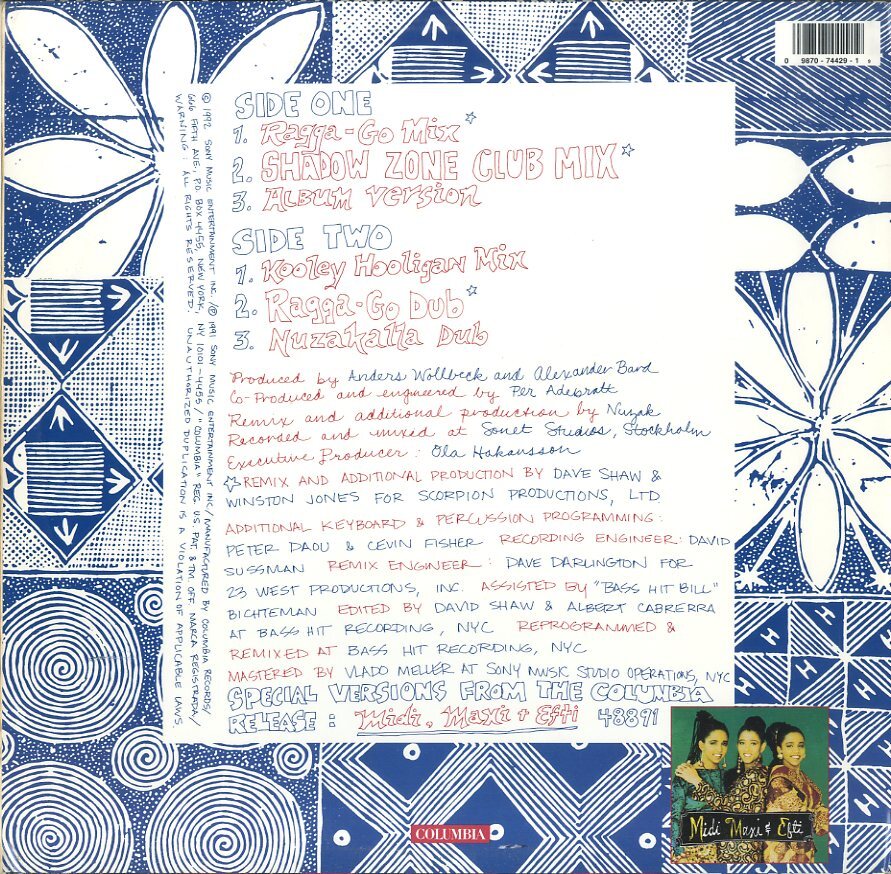 0 9870-74429-1 9
SIDE ONE
1. Ragga-Go Mix☆
2. SHADOW ZONE CLUB MIX☆
3. ALBUM Version
SIDE TWO
1. Kooley Hooligan Mix
2. Ragga-Go Dub☆
3. Nuzakalla Dub
Produced by Anders Wollbeck and Alexander Bard
Co-Produced and engineered by Per Adebratt
Remix and additional production by Nuzak
Recorded and mixed at Sonet Studios, Stockholm
Executive Producer: Ola Hakansson
☆REMIX AND ADDITIONAL PRODUCTION BY DAVE SHAW &
WINSTON JONES FOR SCORPION PRODUCTIONS, LTD
ADDITIONAL KEYBOARD & PERCUSSION PROGRAMMING:
PETER DAOU & CEVIN FISHER RECORDING ENGINEER: DAVID
SUSSMAN REMIX ENGINEER: DAVE DARLINGTON FOR
23 WEST PRODUCTIONS, INC. ASSISTED BY "BASS HIT BILL"
BICHTEMAN EDITED BY DAVID SHAW & ALBERT CABRERRA
AT BASS HIT RECORDING, NYC REPROGRAMMED &
REMIXED AT BASS HIT RECORDING, NYC
MASTERED BY VLADO MELLER AT SONY MUSIC STUDIO OPERATIONS, NYC
SPECIAL VERSIONS FROM THE COLUMBIA
RELEASE: Midi, Maxi + Efti 48891
© 1992 SONY MUSIC ENTERTAINMENT INC./℗ 1991 SONY MUSIC ENTERTAINMENT INC/MANUFACTURED BY COLUMBIA RECORDS/
666 FIFTH AVE, P.O. BOX 4455, NEW YORK, NY 10101-4455/"COLUMBIA" REG. U.S. PAT. & TM. OFF. MARCA REGISTRADA/
WARNING: ALL RIGHTS RESERVED. UNAUTHORIZED DUPLICATION IS A VIOLATION OF APPLICABLE LAWS.
COLUMBIA
Midi Maxi & Efti